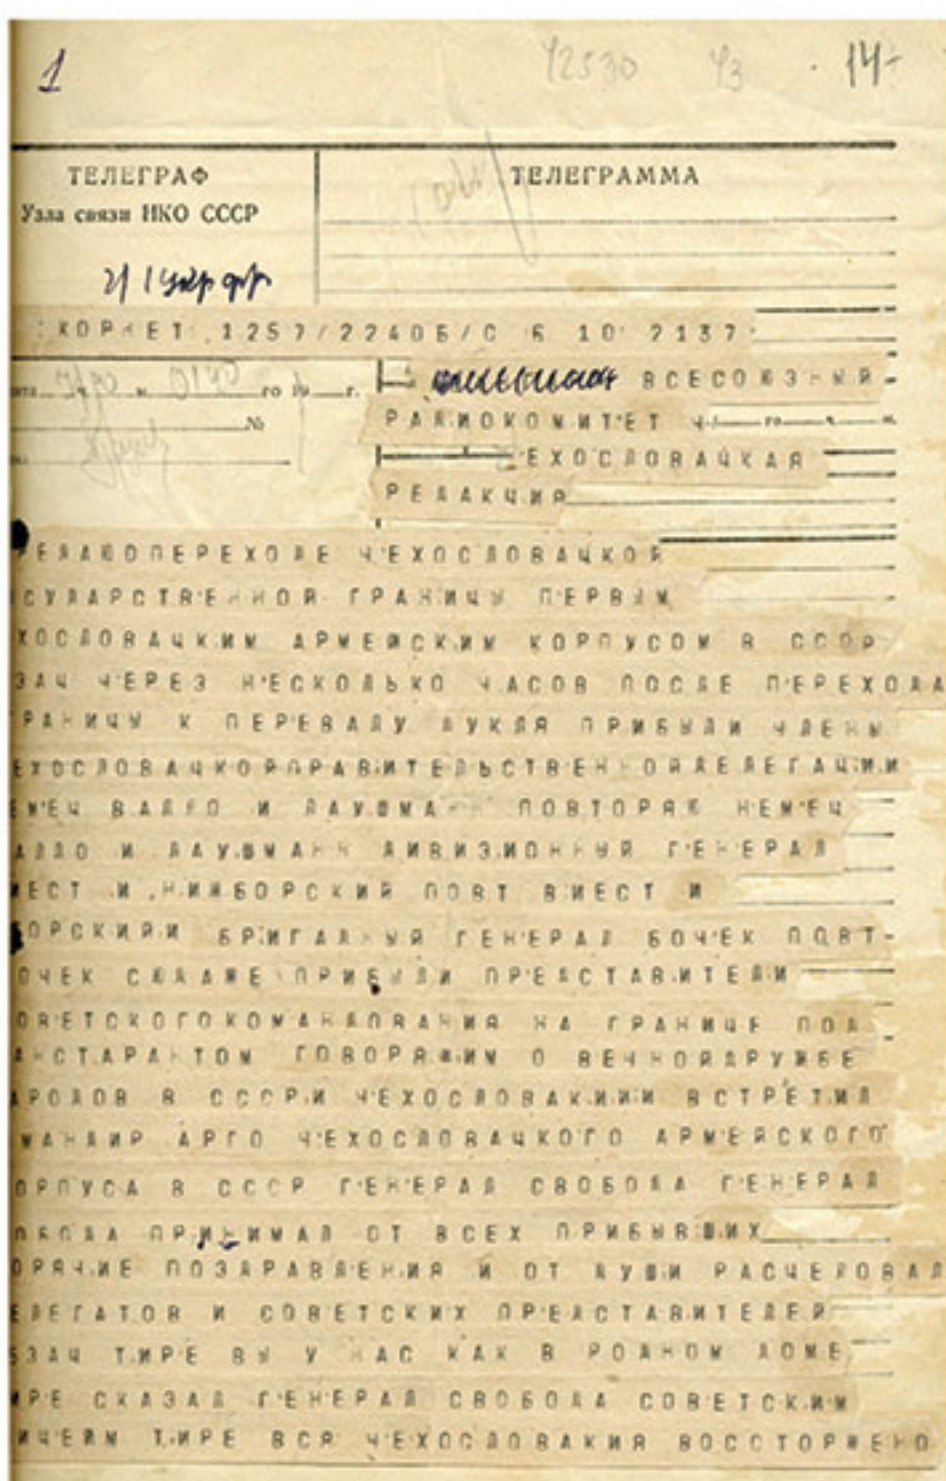 1
42530 43 14-
ТЕЛЕГРАФ
Узла связи НКО СССР
ТЕЛЕГРАММА
КОРНЕТ 1257/2240Б/С 6 10 2137
го 19 г.
№
ВСЕСОЮЗНЫЙ
РАДИОКОМИТЕТ Ч
ЕХОСЛОВАЦКАЯ
РЕДАКЦИЯ
РЕДАЮОПЕРЕХОДЕ ЧЕХОСЛОВАЦКОЙ
СУДАРСТВЕННОЙ ГРАНИЦЫ ПЕРВЫМ
ХОСЛОВАЦКИМ АРМЕЙСКИМ КОРПУСОМ В СССР
ЗАЦ ЧЕРЕЗ НЕСКОЛЬКО ЧАСОВ ПОСЛЕ ПЕРЕХОДА
РАНИЦЫ К ПЕРЕВАЛУ ДУКЛЯ ПРИБЫЛИ ЧЛЕНЫ
ЕХОСЛОВАЦКОЙПРАВИТЕЛЬСТВЕННОЙДЕЛЕГАЦИИ
ЕМЕЦ ВАЛЛО И ЛАУШМАНН ПОВТОРЯЮ НЕМЕЦ
АЛЛО И ЛАУШМАНН ДИВИЗИОННЫЙ ГЕНЕРАЛ
ИЕСТ И НИЖБОРСКИЙ ПОВТ ВИЕСТ И
БОРСКИЙИ БРИГАДНЫЙ ГЕНЕРАЛ БОЧЕК ПОВТ-
ОЧЕК СЮДАЖЕ ПРИБЫЛИ ПРЕДСТАВИТЕЛИ
ОВЕТСКОГОКОМАНДОВАНИЯ НА ГРАНИЦЕ ПОД
АНСТАРАНТОМ ГОВОРЯЩИМ О ВЕЧНОЙДРУЖБЕ
АРОДОВ В СССРИ ЧЕХОСЛОВАКИИИ ВСТРЕТИЛ
МАНДИР АРГО ЧЕХОСЛОВАЦКОГО АРМЕЙСКОГО
ОРПУСА В СССР ГЕНЕРАЛ СВОБОДА ГЕНЕРАЛ
ОБОДА ПРИНИМАЛ ОТ ВСЕХ ПРИБЫВШИХ
ОРЯЧИЕ ПОЗДРАВЛЕНИЯ И ОТ ДУШИ РАСЦЕЛОВАЛ
ЕЛЕГАТОВ И СОВЕТСКИХ ПРЕДСТАВИТЕЛЕЙ
БЗАЦ ТИРЕ ВЫ У НАС КАК В РОДНОМ ДОМЕ
ИРЕ СКАЗАЛ ГЕНЕРАЛ СВОБОДА СОВЕТСКИМ
ТИРЕ ВСЯ ЧЕХОСЛОВАКИЯ ВОССТОРЖЕНО